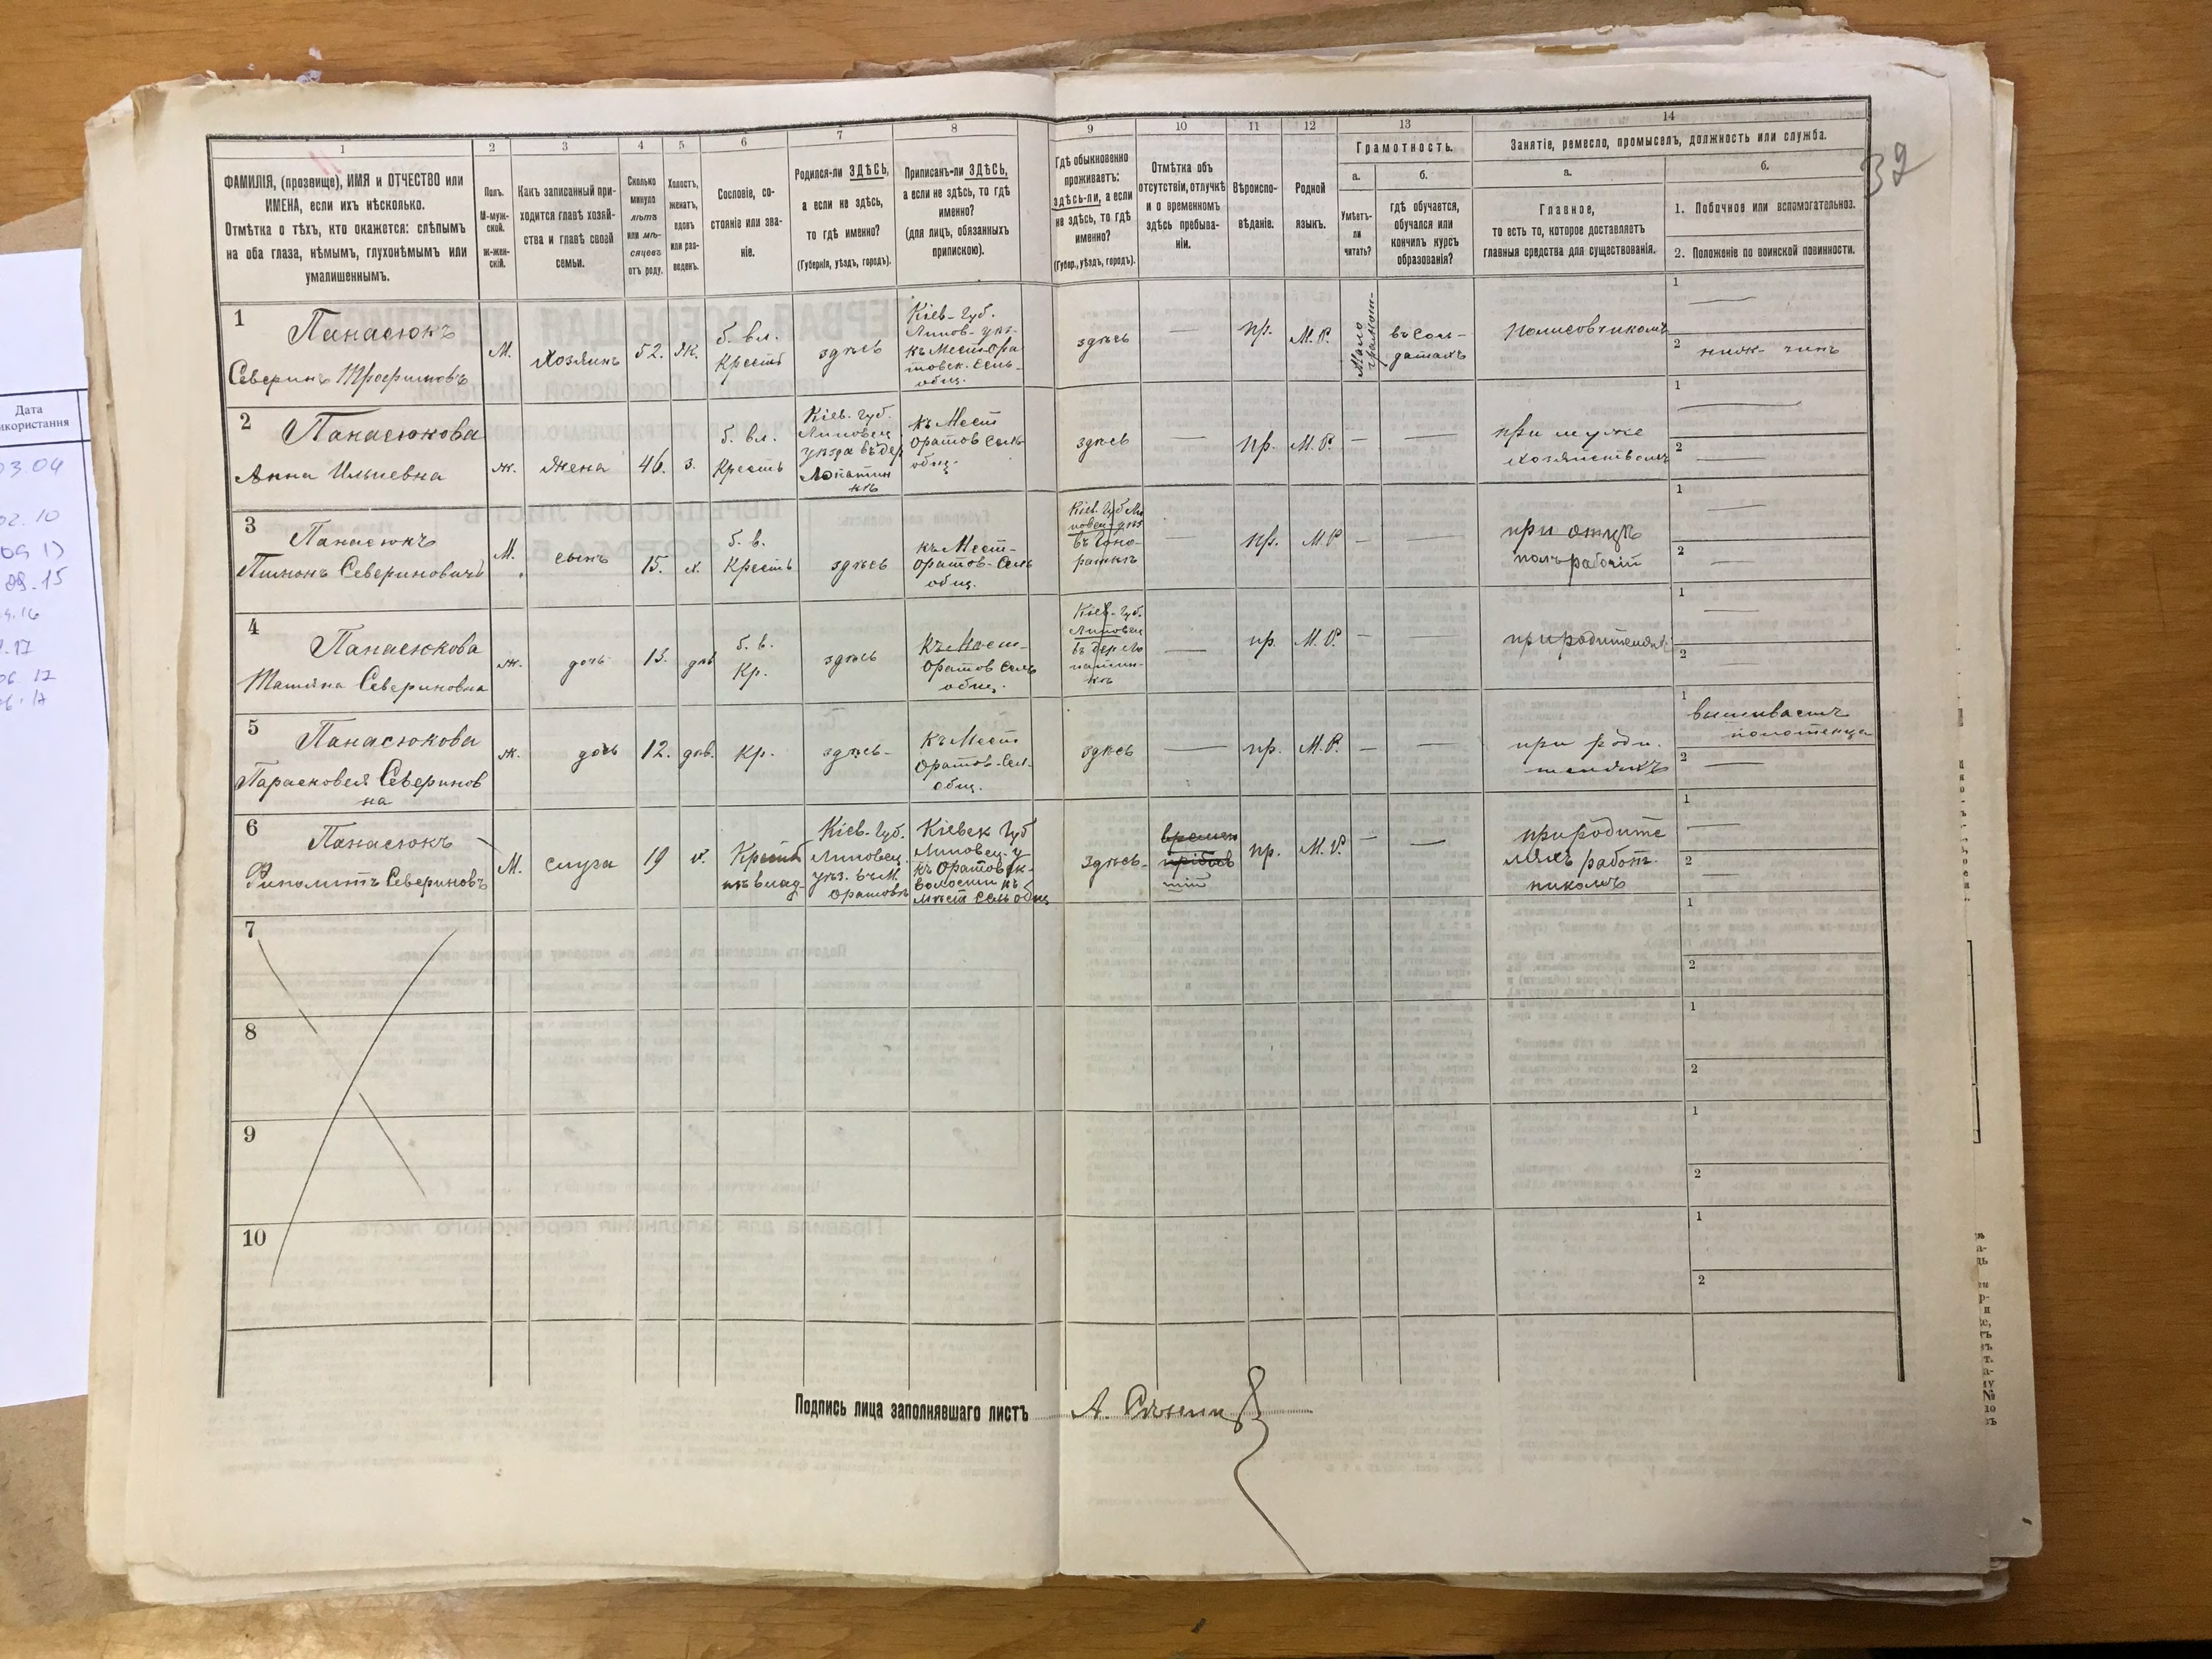 32
1
2
3
4
5
6
7
8
9
10
11
12
13
14
ФАМИЛІЯ, (прозвище), ИМЯ и ОТЧЕСТВО или
ИМЕНА, если ихъ нѣсколько.
Отмѣтка о тѣхъ, кто окажется: слѣпымъ
на оба глаза, нѣмымъ, глухонѣмымъ или
умалишеннымъ.
Полъ.
М-муж-
ской.
Ж-жен-
скій.
Какъ записанный при-
ходится главѣ хозяй-
ства и главѣ своей
семьи.
Сколько
минуло
лѣтъ
или мѣ-
сяцевъ
отъ роду.
Холостъ,
женатъ,
вдовъ
или раз-
веденъ.
Сословіе, со-
стояніе или зва-
ніе.
Родился-ли ЗДѢСЬ,
а если не здѣсь,
то гдѣ именно?
(Губернія, уѣздъ, городъ).
Приписанъ-ли ЗДѢСЬ,
а если не здѣсь, то гдѣ
именно?
(для лицъ, обязанныхъ
припискою).
Гдѣ обыкновенно
проживаетъ:
здѣсь-ли, а если
не здѣсь, то гдѣ
именно?
(Губер., уѣздъ, городъ).
Отмѣтка объ
отсутствіи, отлучкѣ
и о временномъ
здѣсь пребыва-
ніи.
Вѣроиспо-
вѣданіе.
Родной
языкъ.
Грамотность.
а.
Умѣетъ-
ли
читать?
б.
гдѣ обучается,
обучался или
кончилъ курсъ
образованія?
Занятіе, ремесло, промыселъ, должность или служба.
а.
Главное,
то есть то, которое доставляетъ
главныя средства для существованія.
б.
1. Побочное или вспомогательное.
2. Положеніе по воинской повинности.
1
Панасюкъ
Северинъ Трофимовъ
М.
Хозяинъ
52.
Ж.
б. вл.
Крестъ
здѣсь
Кіев- Губ.
Липов- уѣз-
къ Мест Ора
товск. Сель-
общ.
здѣсь
пр.
М. Р.
Мало
грамот-
въ сол-
датахъ
полисовчикомъ
1
2 ниж- чинъ
2
Панасюкова
Анна Ильиевна
ж.
Жена
46.
з.
б. вл.
Кресть
Кіев. Губ.
Липовец
уѣзда въ дер
Лопатин
кѣ
къ Мест
Оратов Сель
общ.
здѣсь
пр.
М. Р.
при муже
хозяйствомъ
1
2
3
Панасюкъ
Пимонъ Севериновичъ
М.
сынъ
15.
х.
б. в.
Кресть
здѣсь
къ Мест-
Оратов- Сель
общ.
Кіев. Губ Ли
повец- уѣз
въ Гоно-
раткѣ
пр.
М. Р
при отцѣ
полъ рабочій
1
2
4
Панасюкова
Татьяна Севериновна
ж.
дочь
13.
дѣв
б. в.
Кр.
здѣсь
къ Мест-
Оратов Сель
общ.
Кіев- Губ.
Липовец
въ дер Ло
патин-
кѣ
пр.
М. Р.
при родителях
1
2
5
Панасюкова
Парасковея Северинов
на
ж.
дочь
12.
дѣв.
Кр.
здѣсь-
къ Мест
Оратов- Сел-
общ.
здѣсь
пр.
М. Р.
при роди-
теляхъ
1 вышиваетъ
полотенца
2
6
Панасюкъ
Филимитъ Севериновъ
М.
слуга
19
Кіев- Губ.
Липовец.
уѣз. въ М
Оратовѣ
Кіевск Губ
Липовец. у
къ Оратовск-
волости къ
мѣст Сель общ
здѣсь-
времен
пр.
М. Р.
при родите
ляхъ работ
никомъ
1
2
7
1
2
8
1
2
9
1
2
10
1
2
Подпись лица заполнявшаго листъ
Дата
икористання
03.04
02.10